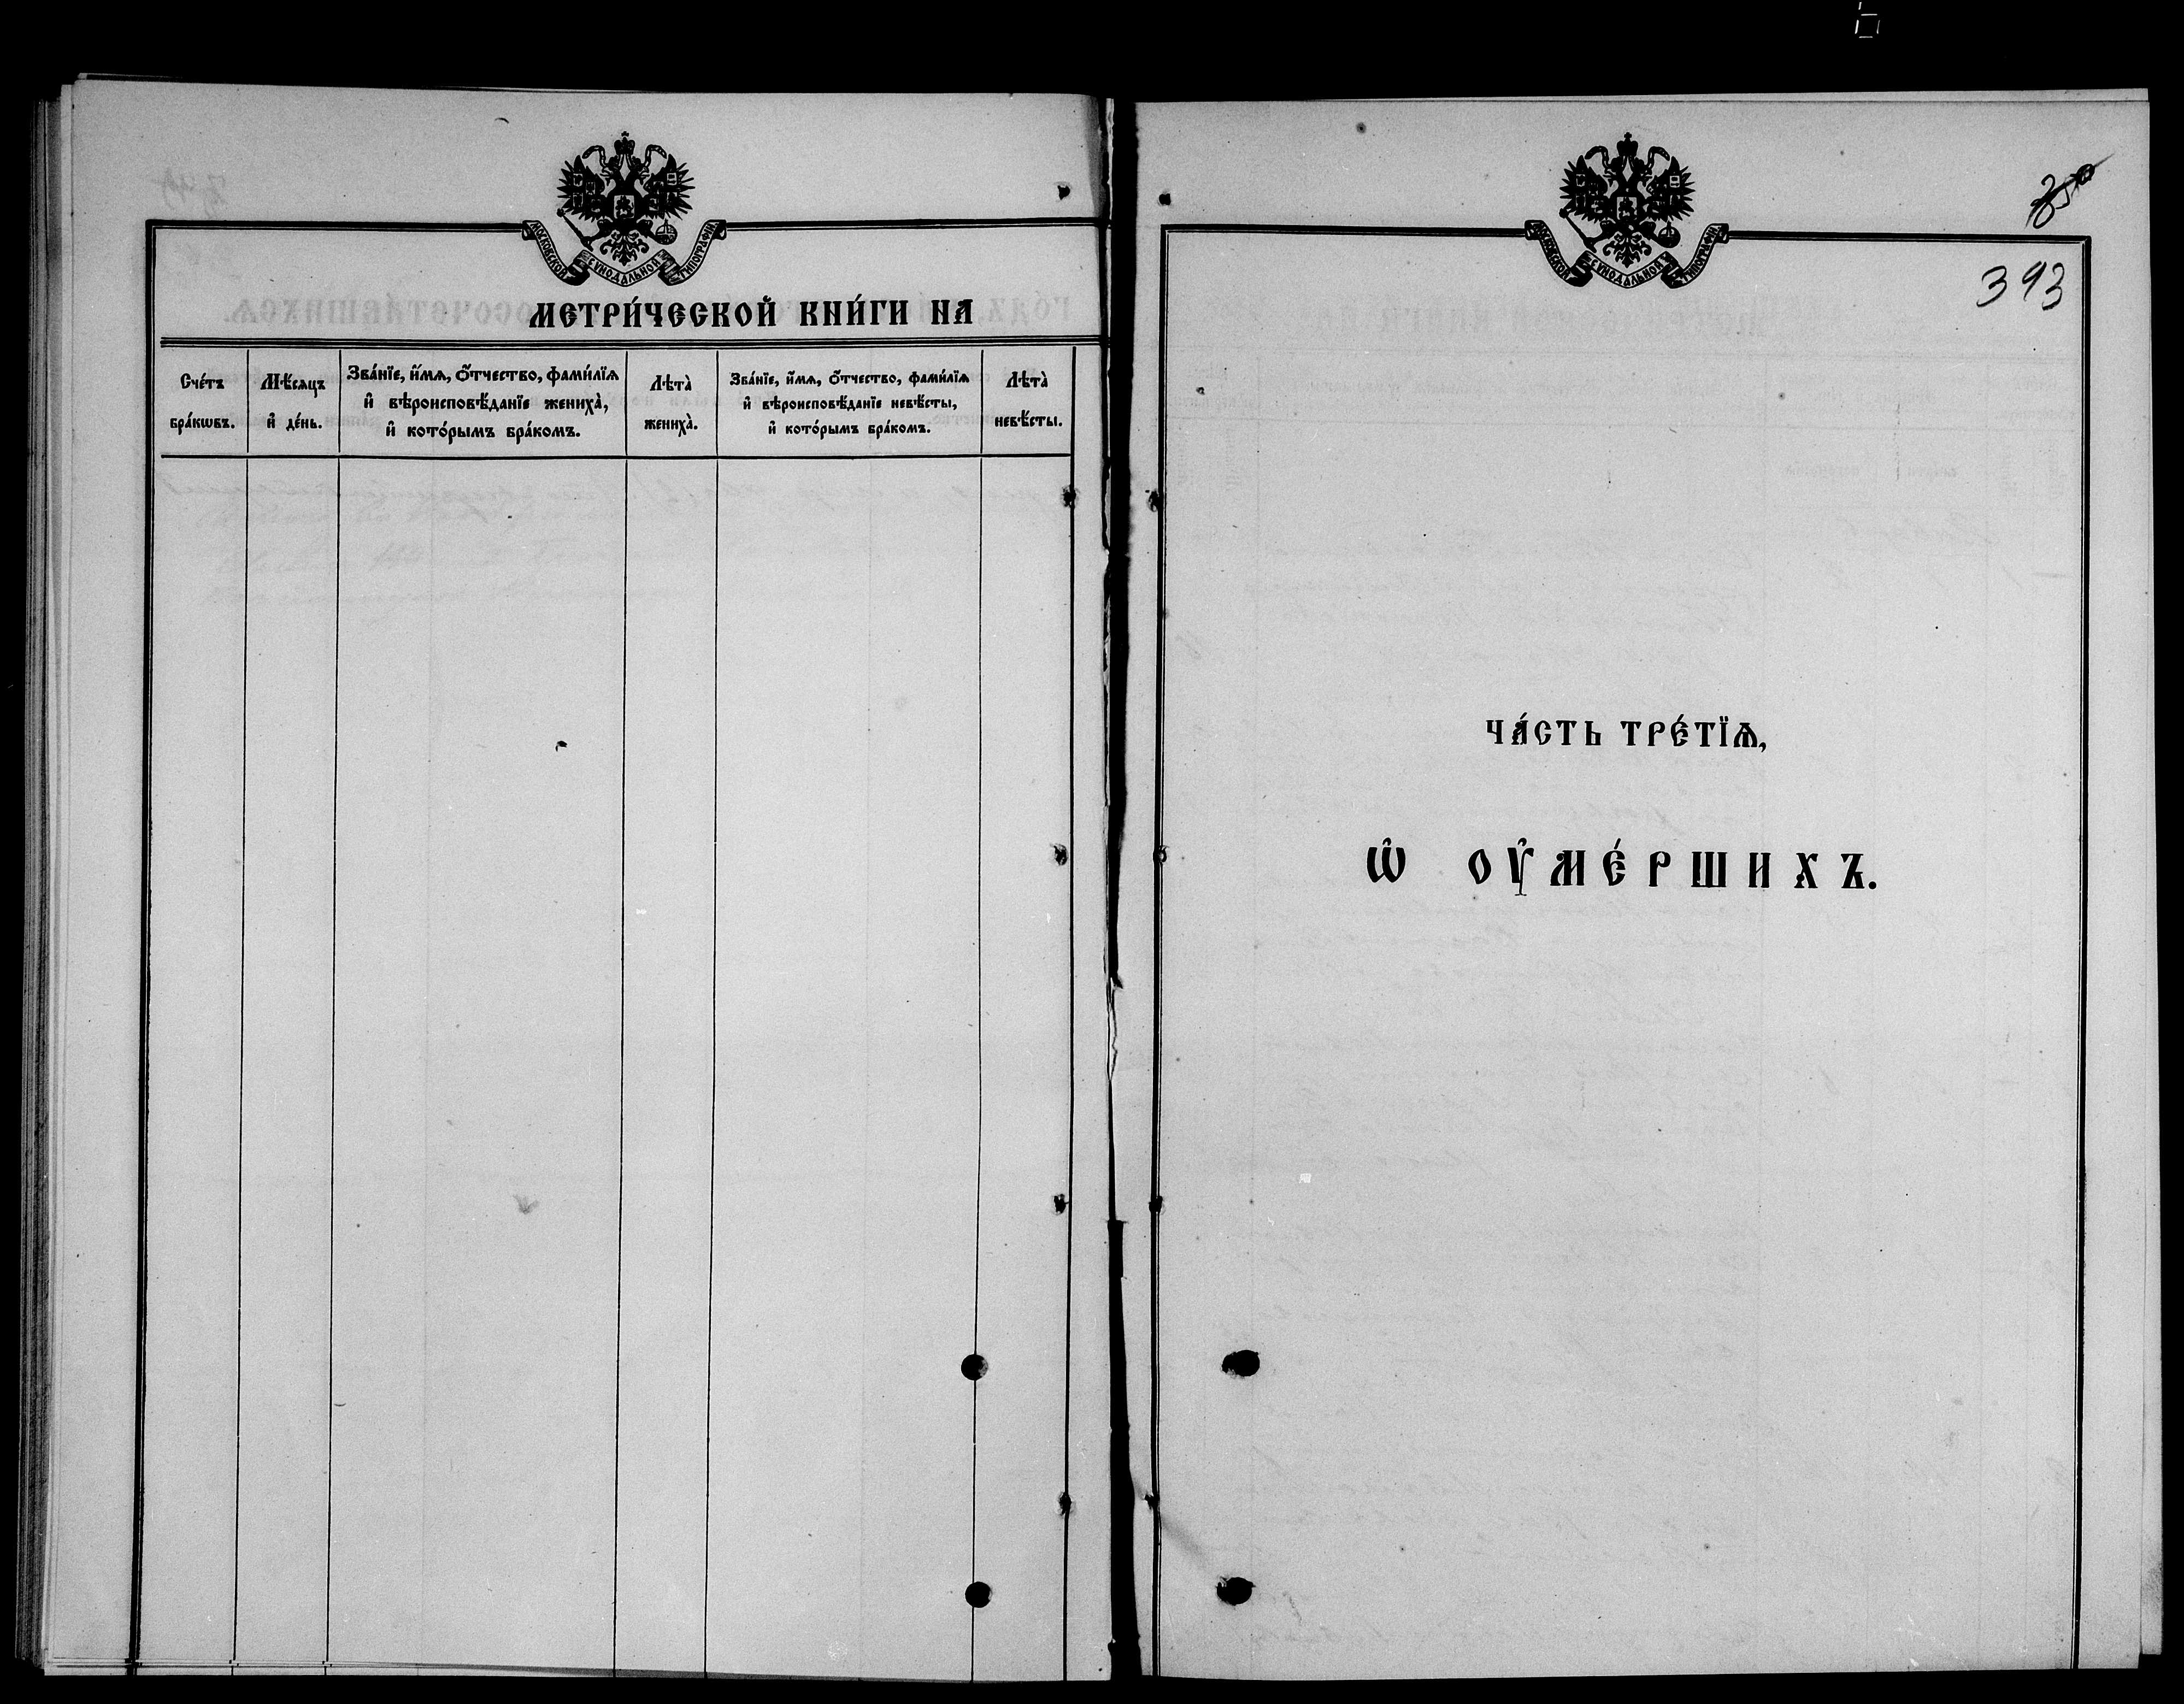 МОСКОВСКОЙ СѴНОДАЛЬНОЙ ТИПОГРАФІИ
МЕТРИ́ЧЕСКОЙ КНИ́ГИ НА
Сче́тъ бра́кѡвъ.
Мѣ́сяцъ и҆ де́нь.
Зва́нїе, и҆́мѧ, ѻ҆́тчество, фами́лїѧ
и҆ вѣроисповѣ́данїе жениха̀,
и҆ кото́рымъ бра́комъ.
Лѣта̀ жениха̀.
Зва́нїе, и҆́мѧ, ѻ҆́тчество, фами́лїѧ
и҆ вѣроисповѣ́данїе невѣ́сты,
и҆ кото́рымъ бра́комъ.
Лѣта̀ невѣ́сты.
МОСКОВСКОЙ СѴНОДАЛЬНОЙ ТИПОГРАФІИ
393
ЧА́СТЬ ТРЕ́ТЇѦ,
Ѡ҆ ОУ҆МЕ́РШИХЪ.